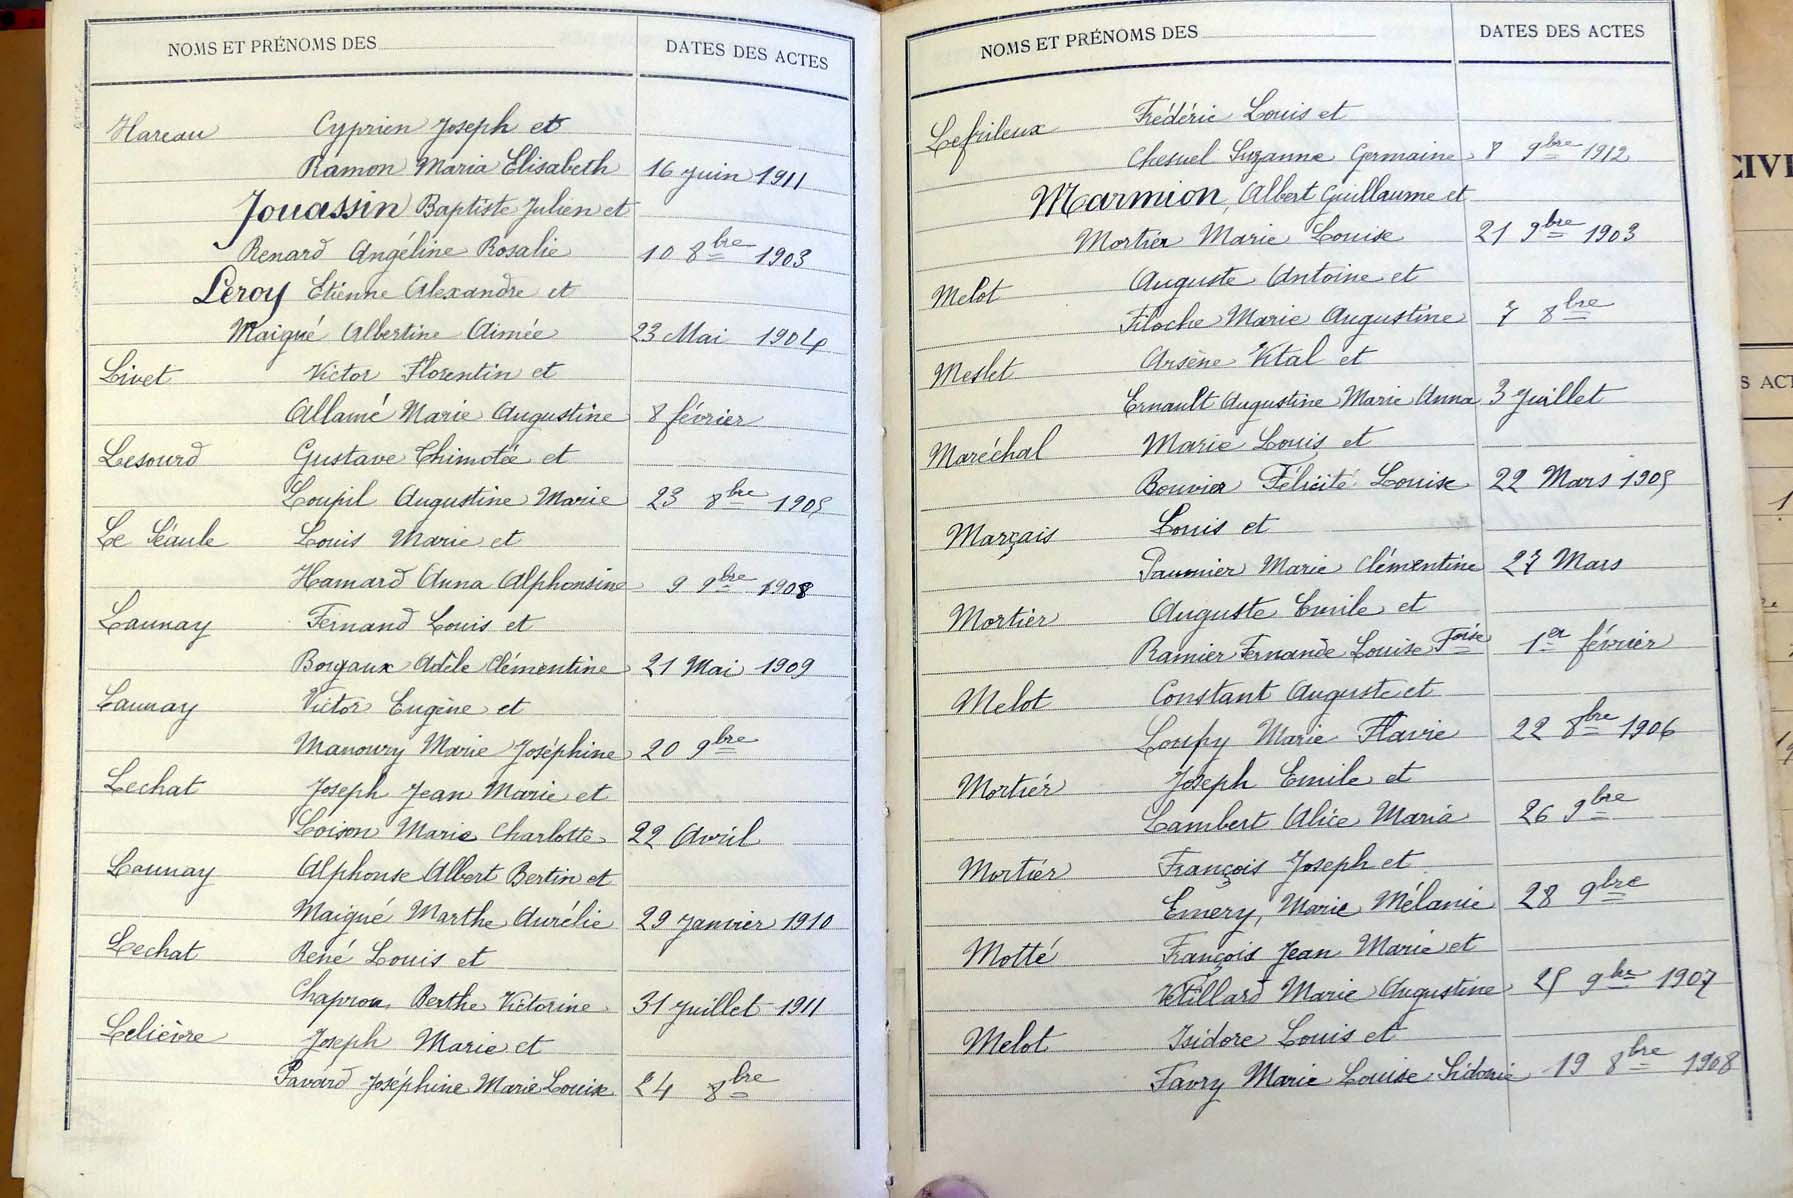 NOMS ET PRÉNOMS DES DATES DES ACTES
Hareau Cyprien Joseph et
Ramon Maria Elisabeth 16 Juin 1911
Jouassin Baptiste Julien et
Renard Angéline Rosalie 10 8bre 1903
Leroy Etienne Alexandre et
Maigné Albertine Aimée 23 Mai 1904
Livet Victor Florentin et
Allamé Marie Augustine 8 février
Lesourd Gustave Thimotée et
Loupil Augustine Marie 23 8bre 1905
Le Séaule Louis Marie et
Hamard Anna Alphonsine 9 9bre 1908
Launay Fernand Louis et
Adèle Clémentine 21 Mai 1909
Launay Victor Eugène et
Manoury Marie Joséphine 20 9bre
Lechat Joseph Jean Marie et
Loison Marie Charlotte 22 Avril
Launay Alphonse Albert Bertin et
Maigné Marthe Aurélie 29 Janvier 1910
Lechat René Louis et
Chapron Berthe Victorine 31 Juillet 1911
Lelièvre Joseph Marie et
Pavard Joséphine Marie Louise 24 8bre
NOMS ET PRÉNOMS DES DATES DES ACTES
Lefrileux Frédéric Louis et
Chesnel Suzanne Germaine 8 9bre 1912
Marmion, Albert Guillaume et
Mortier Marie Louise 21 9bre 1903
Melot Auguste Antoine et
Filoche Marie Augustine 7 8bre
Meslet Arsène Vital et
Ernault Augustine Marie Anna 3 Juillet
Maréchal Marie Louis et
Bouvier Félicité Louise 22 Mars 1905
Marçais Louis et
Paumier Marie Clémentine 27 Mars
Mortier Auguste Emile et
Ramier Fernande Louise Foise 1er février
Melot Constant Auguste et
Loupy Marie Flavie 22 8bre 1906
Mortier Joseph Emile et
Lambert Alice Maria 26 9bre
Mortier François Joseph et
Emery, Marie Mélanie 28 9bre
Motté François Jean Marie et
Vétillard Marie Augustine 25 9bre 1907
Melot Isidore Louis et
Favry Marie Louise Sidonie 19 8bre 1908
CIVI
S ACT
1